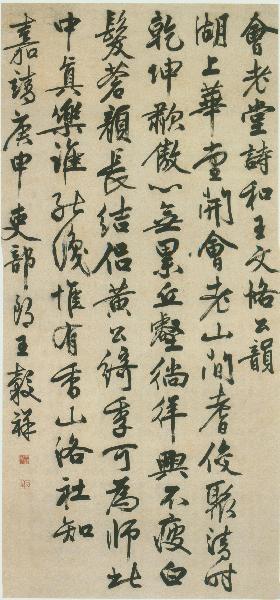 會老堂詩和王文恪公韻
湖上華堂開會老山間耆俊聚清時
乾坤歌傲心無累丘壑徜徉興不疲白
髮蒼顏長結侶黃公綺季可為師此
中真樂誰能識惟有香山洛社知
嘉靖庚申吏部郎王穀祥